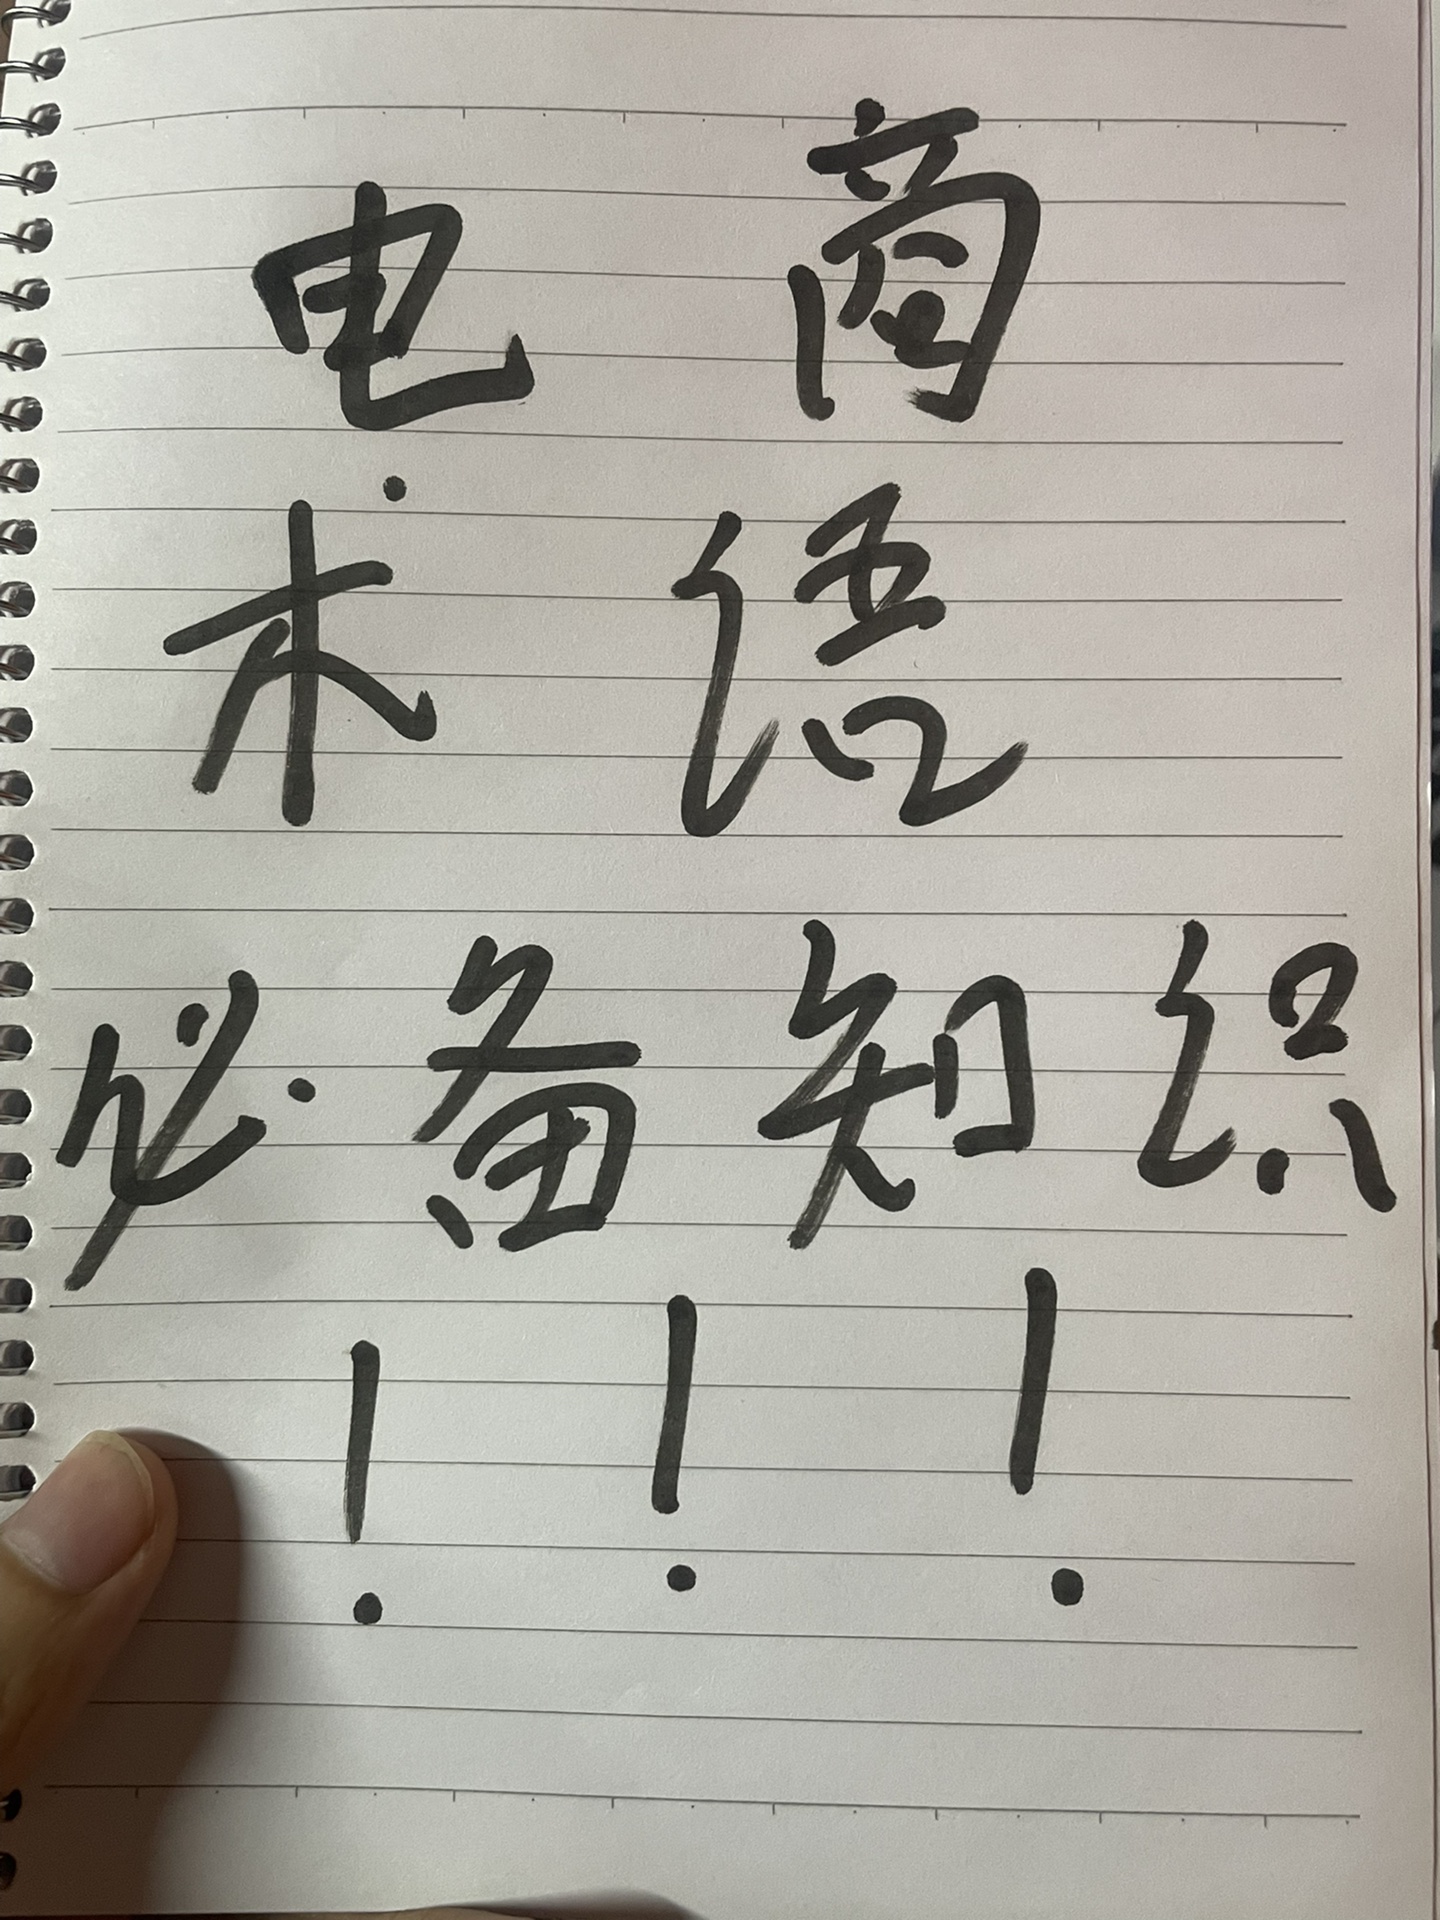 电商
术语
必备知识
！！！